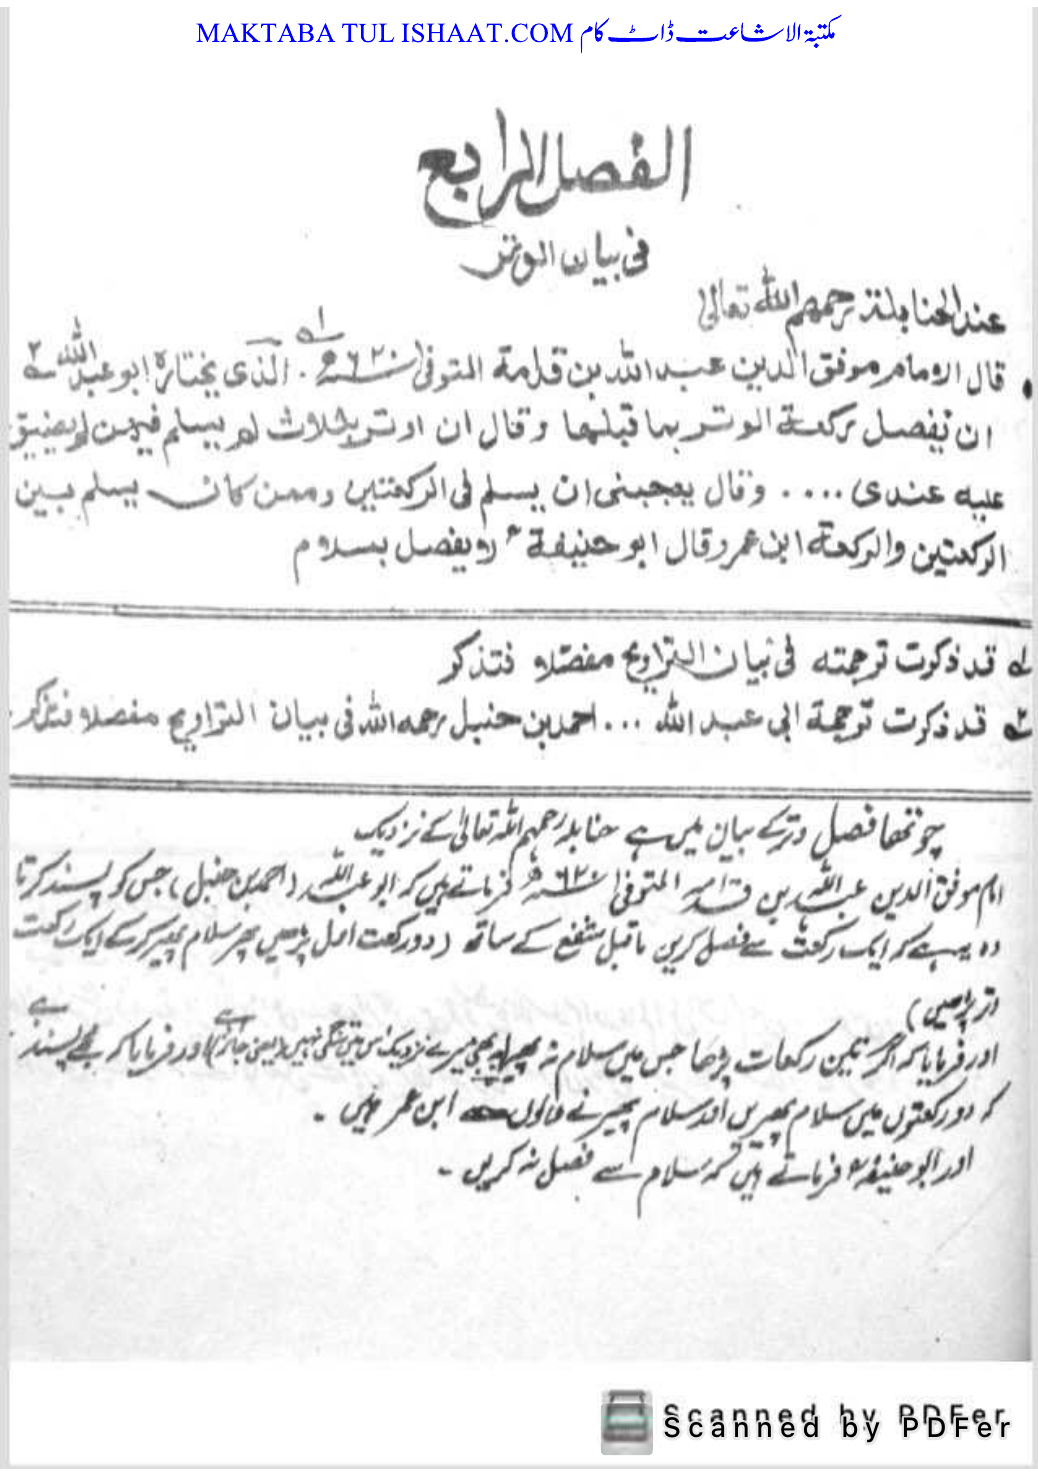 MAKTABA TUL ISHAAT.COM مکتبۃ الاشاعت ڈاٹ کام
الفصل الرابع
فی بیان الوتر
عند الحنابلة رحمهم الله تعالیٰ
قال الامام موفق الدین عبد الله بن قدامة المتوفی ۶۲۰ھ ۱ . الذی یختاره ابو عبد الله ۲
ان یفصل رکعة الوتر بما قبلها وقال ان اوتر بثلاث لم یسلم فیهن لم یضیق
علیه عندی .... وقال یعجبنی ان یسلم فی الرکعتین وممن کان یسلم بین
الرکعتین والرکعة ابن عمر وقال ابو حنیفة لا یفصل بسلام
۱ قد ذکرت ترجمته فی بیان التراویح مفصلا فتذکر
۲ قد ذکرت ترجمة ابی عبد الله ... احمد بن حنبل رحمه الله فی بیان التراویح مفصلا فتذکر
چوتھا فصل وتر کے بیان میں ہے حنابلہ رحمہم اللہ تعالیٰ کے نزدیک
امام موفق الدین عبد اللہ بن قدامہ المتوفی ۶۲۰ھ فرماتے ہیں کہ ابو عبد اللہ (احمد بن حنبل) جس کو پسند کرتا
وہ یہ ہے کہ ایک رکعت سے فصل کریں ماقبل شفع کے ساتھ (دو رکعت اول پڑھیں پھر سلام پھیر کر کے ایک رکعت
وتر پڑھیں) ہے
اور فرمایا کہ اگر تین رکعات پڑھا جس میں سلام نہ پھیرا پھر بھی میرے نزدیک اس میں تنگی نہیں (یعنی جائز ہے) اور فرمایا کہ مجھے پسند
کہ دو رکعتوں میں سلام پھیریں اور سلام پھیرنے والوں ابن عمر ہیں ۔
اور ابو حنیفہ فرماتے ہیں کہ سلام سے فصل نہ کریں ۔
Scanned by PDFer